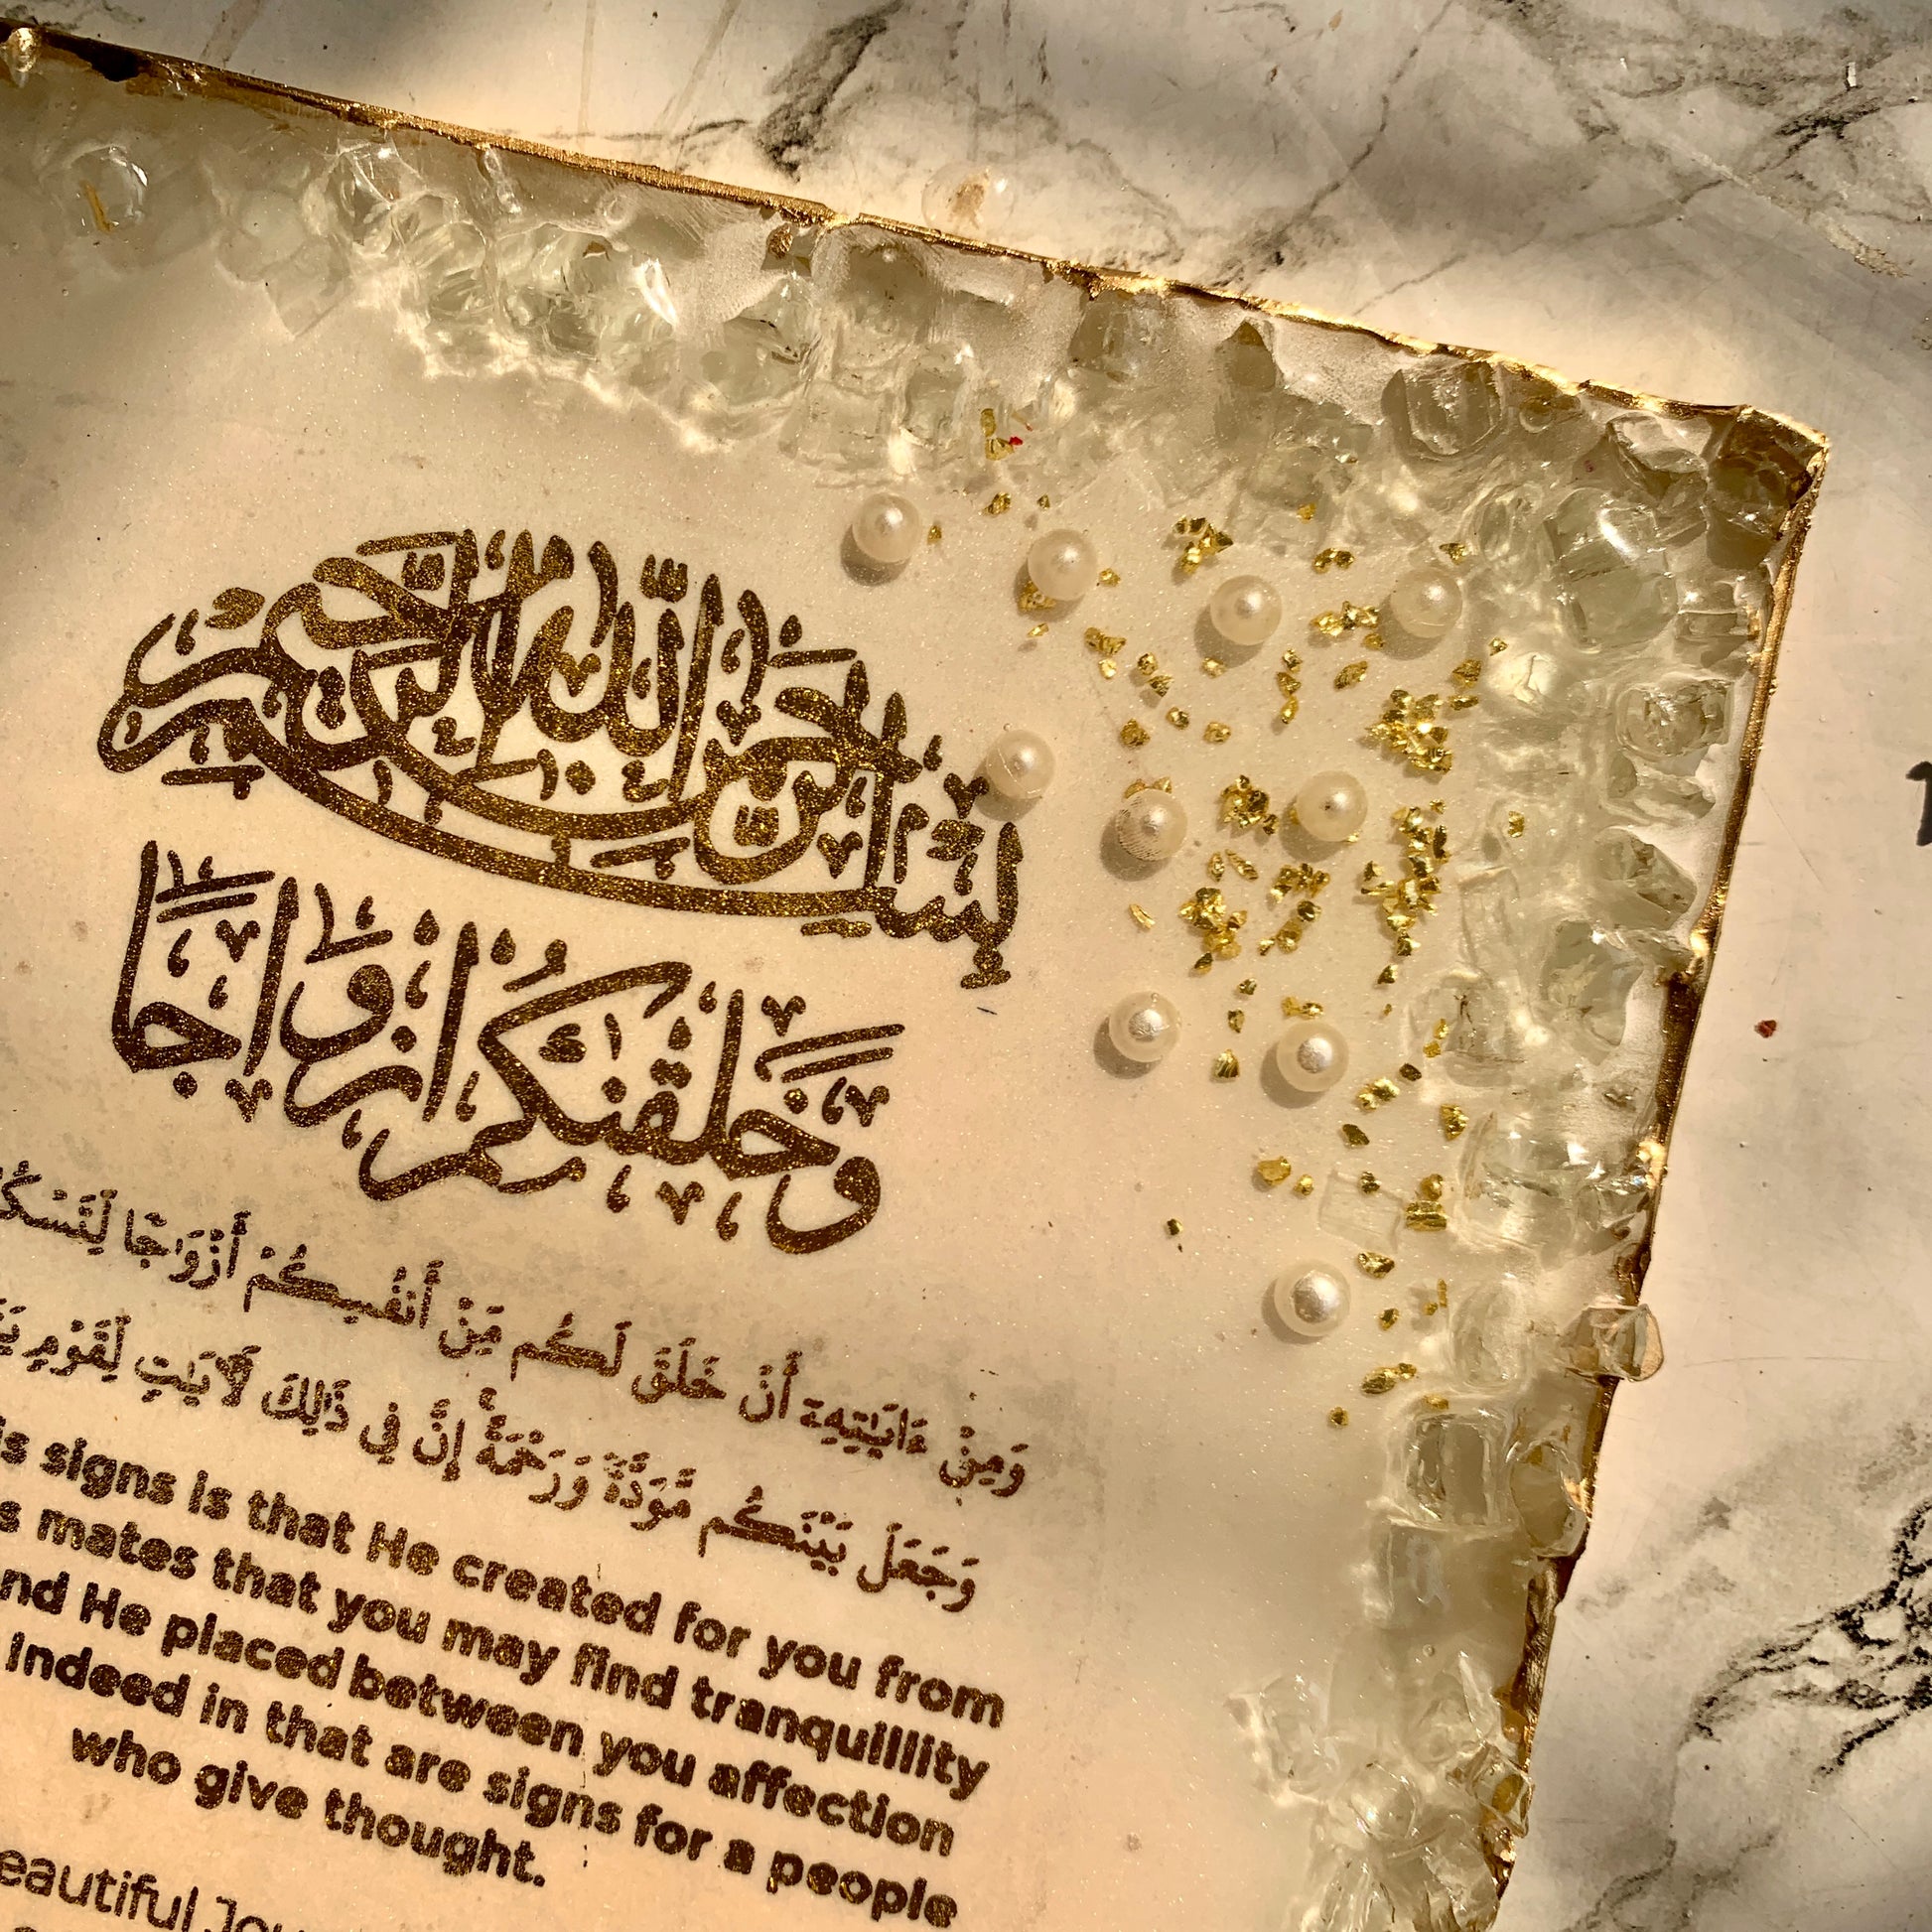 بِسْمِ اللَّهِ الرَّحْمَٰنِ الرَّحِيمِ
وَخَلَقْنَاكُمْ أَزْوَاجًا
وَمِنْ ءَايَٰتِهِۦٓ أَنْ خَلَقَ لَكُم مِّنْ أَنفُسِكُمْ أَزْوَٰجًا
وَجَعَلَ بَيْنَكُم مَّوَدَّةً وَرَحْمَةً إِنَّ فِى ذَٰلِكَ لَءَايَٰتٍ لِّقَوْمٍ
signs is that He created for you from
mates that you may find tranquillity
He placed between you affection
Indeed in that are signs for a people
who give thought.